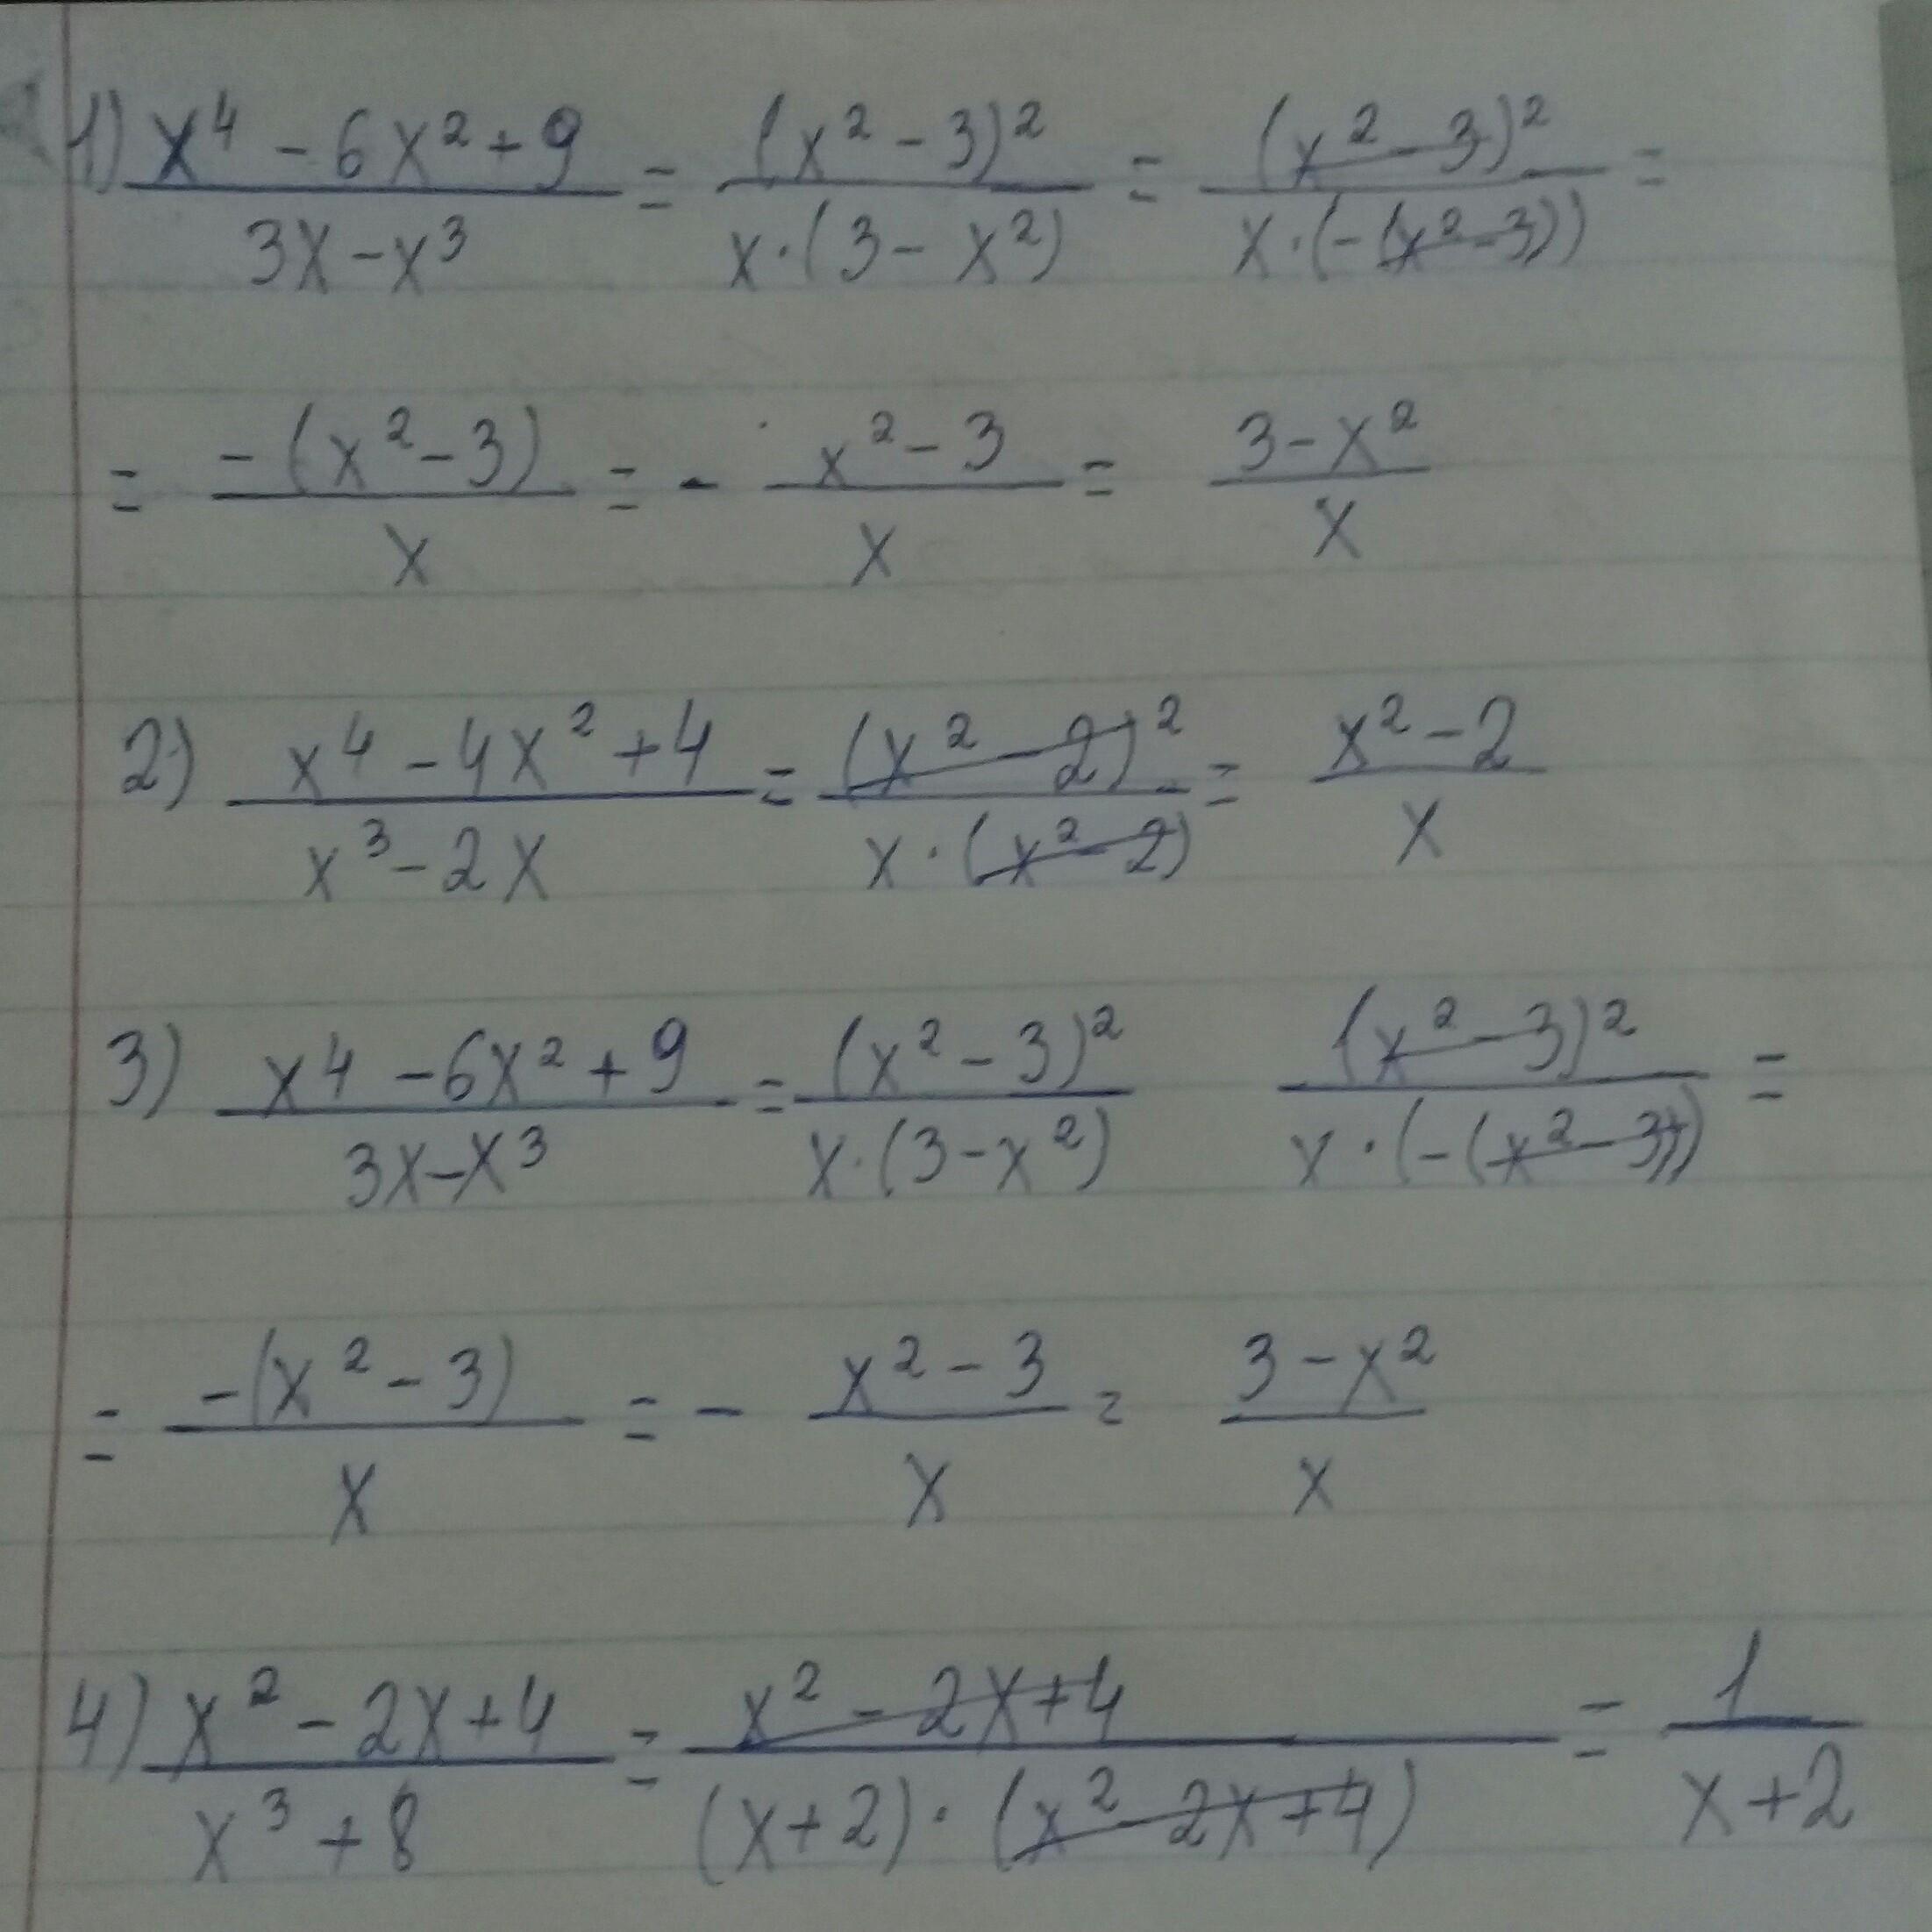 1) (x⁴ - 6x² + 9)/(3x - x³) = (x² - 3)²/(x·(3 - x²)) = (x² - 3)²/(x·(-(x² - 3))) =
= -(x² - 3)/x = - (x² - 3)/x = (3 - x²)/x
2) (x⁴ - 4x² + 4)/(x³ - 2x) = (x² - 2)²/(x·(x² - 2)) = (x² - 2)/x
3) (x⁴ - 6x² + 9)/(3x - x³) = (x² - 3)²/(x·(3 - x²)) (x² - 3)²/(x·(-(x² - 3))) =
= -(x² - 3)/x = - (x² - 3)/x = (3 - x²)/x
4) (x² - 2x + 4)/(x³ + 8) = (x² - 2x + 4)/((x + 2)·(x² - 2x + 4)) = 1/(x + 2)